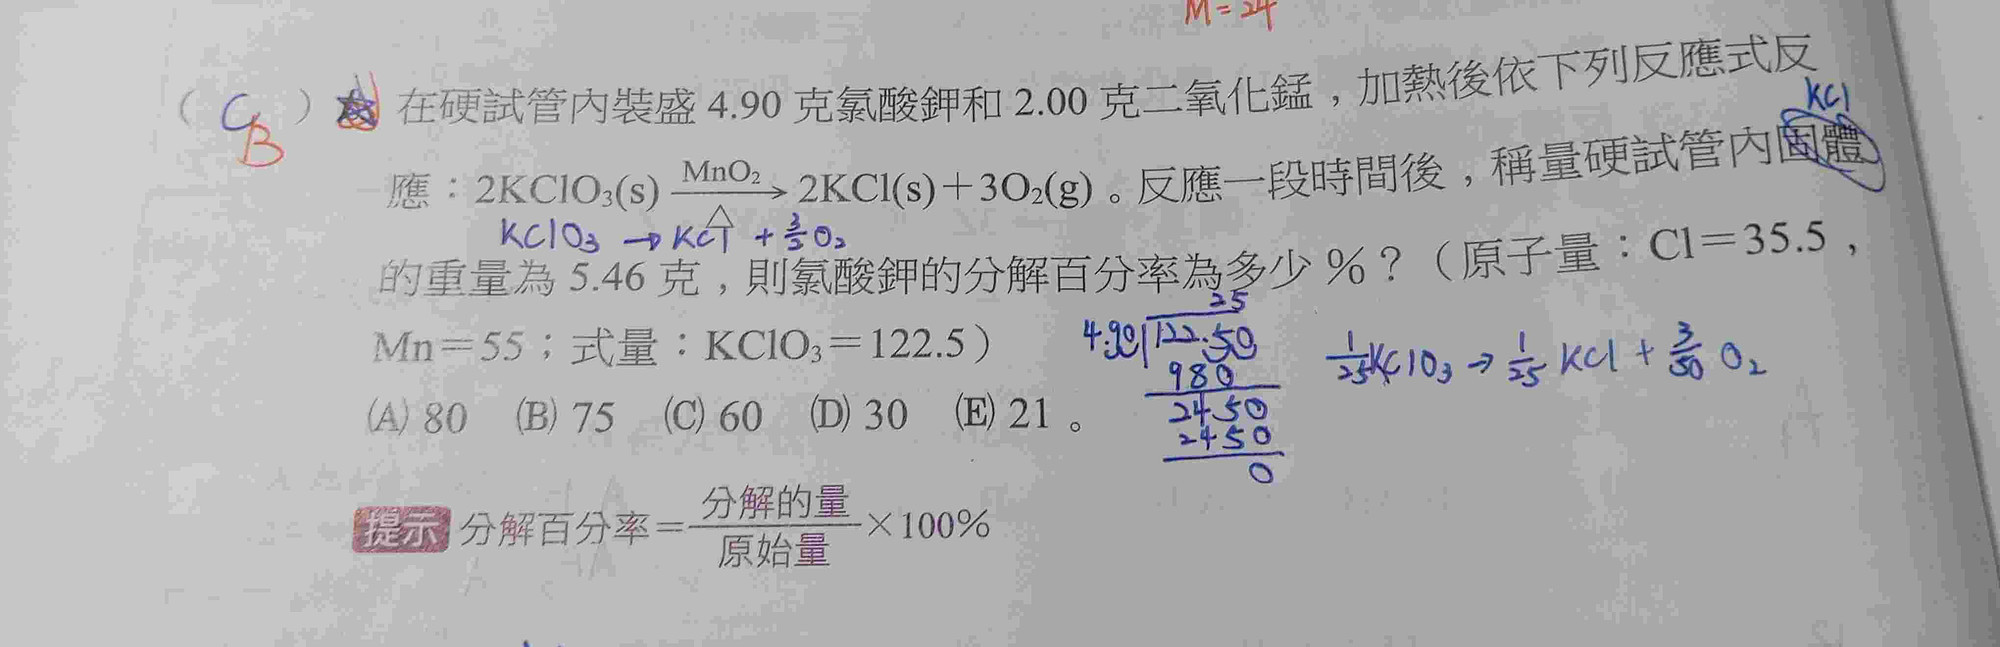 M=24
(C)在硬試管內裝盛 4.90 克氯酸鉀和 2.00 克二氧化錳，加熱後依下列反應式反
B
KCl
應：2KClO₃(s) MnO₂→△ 2KCl(s)＋3O₂(g)。反應一段時間後，稱量硬試管內固體
KClO₃ → KCl + 3/2 O₂
的重量為 5.46 克，則氯酸鉀的分解百分率為多少 %？（原子量：Cl＝35.5，
25
Mn＝55；式量：KClO₃＝122.5）
4.90 122.50
1/25 KClO₃ → 1/25 KCl + 3/50 O₂
980
(A) 80 (B) 75 (C) 60 (D) 30 (E) 21 。
2450
2450
0
提示 分解百分率＝分解的量/原始量×100%